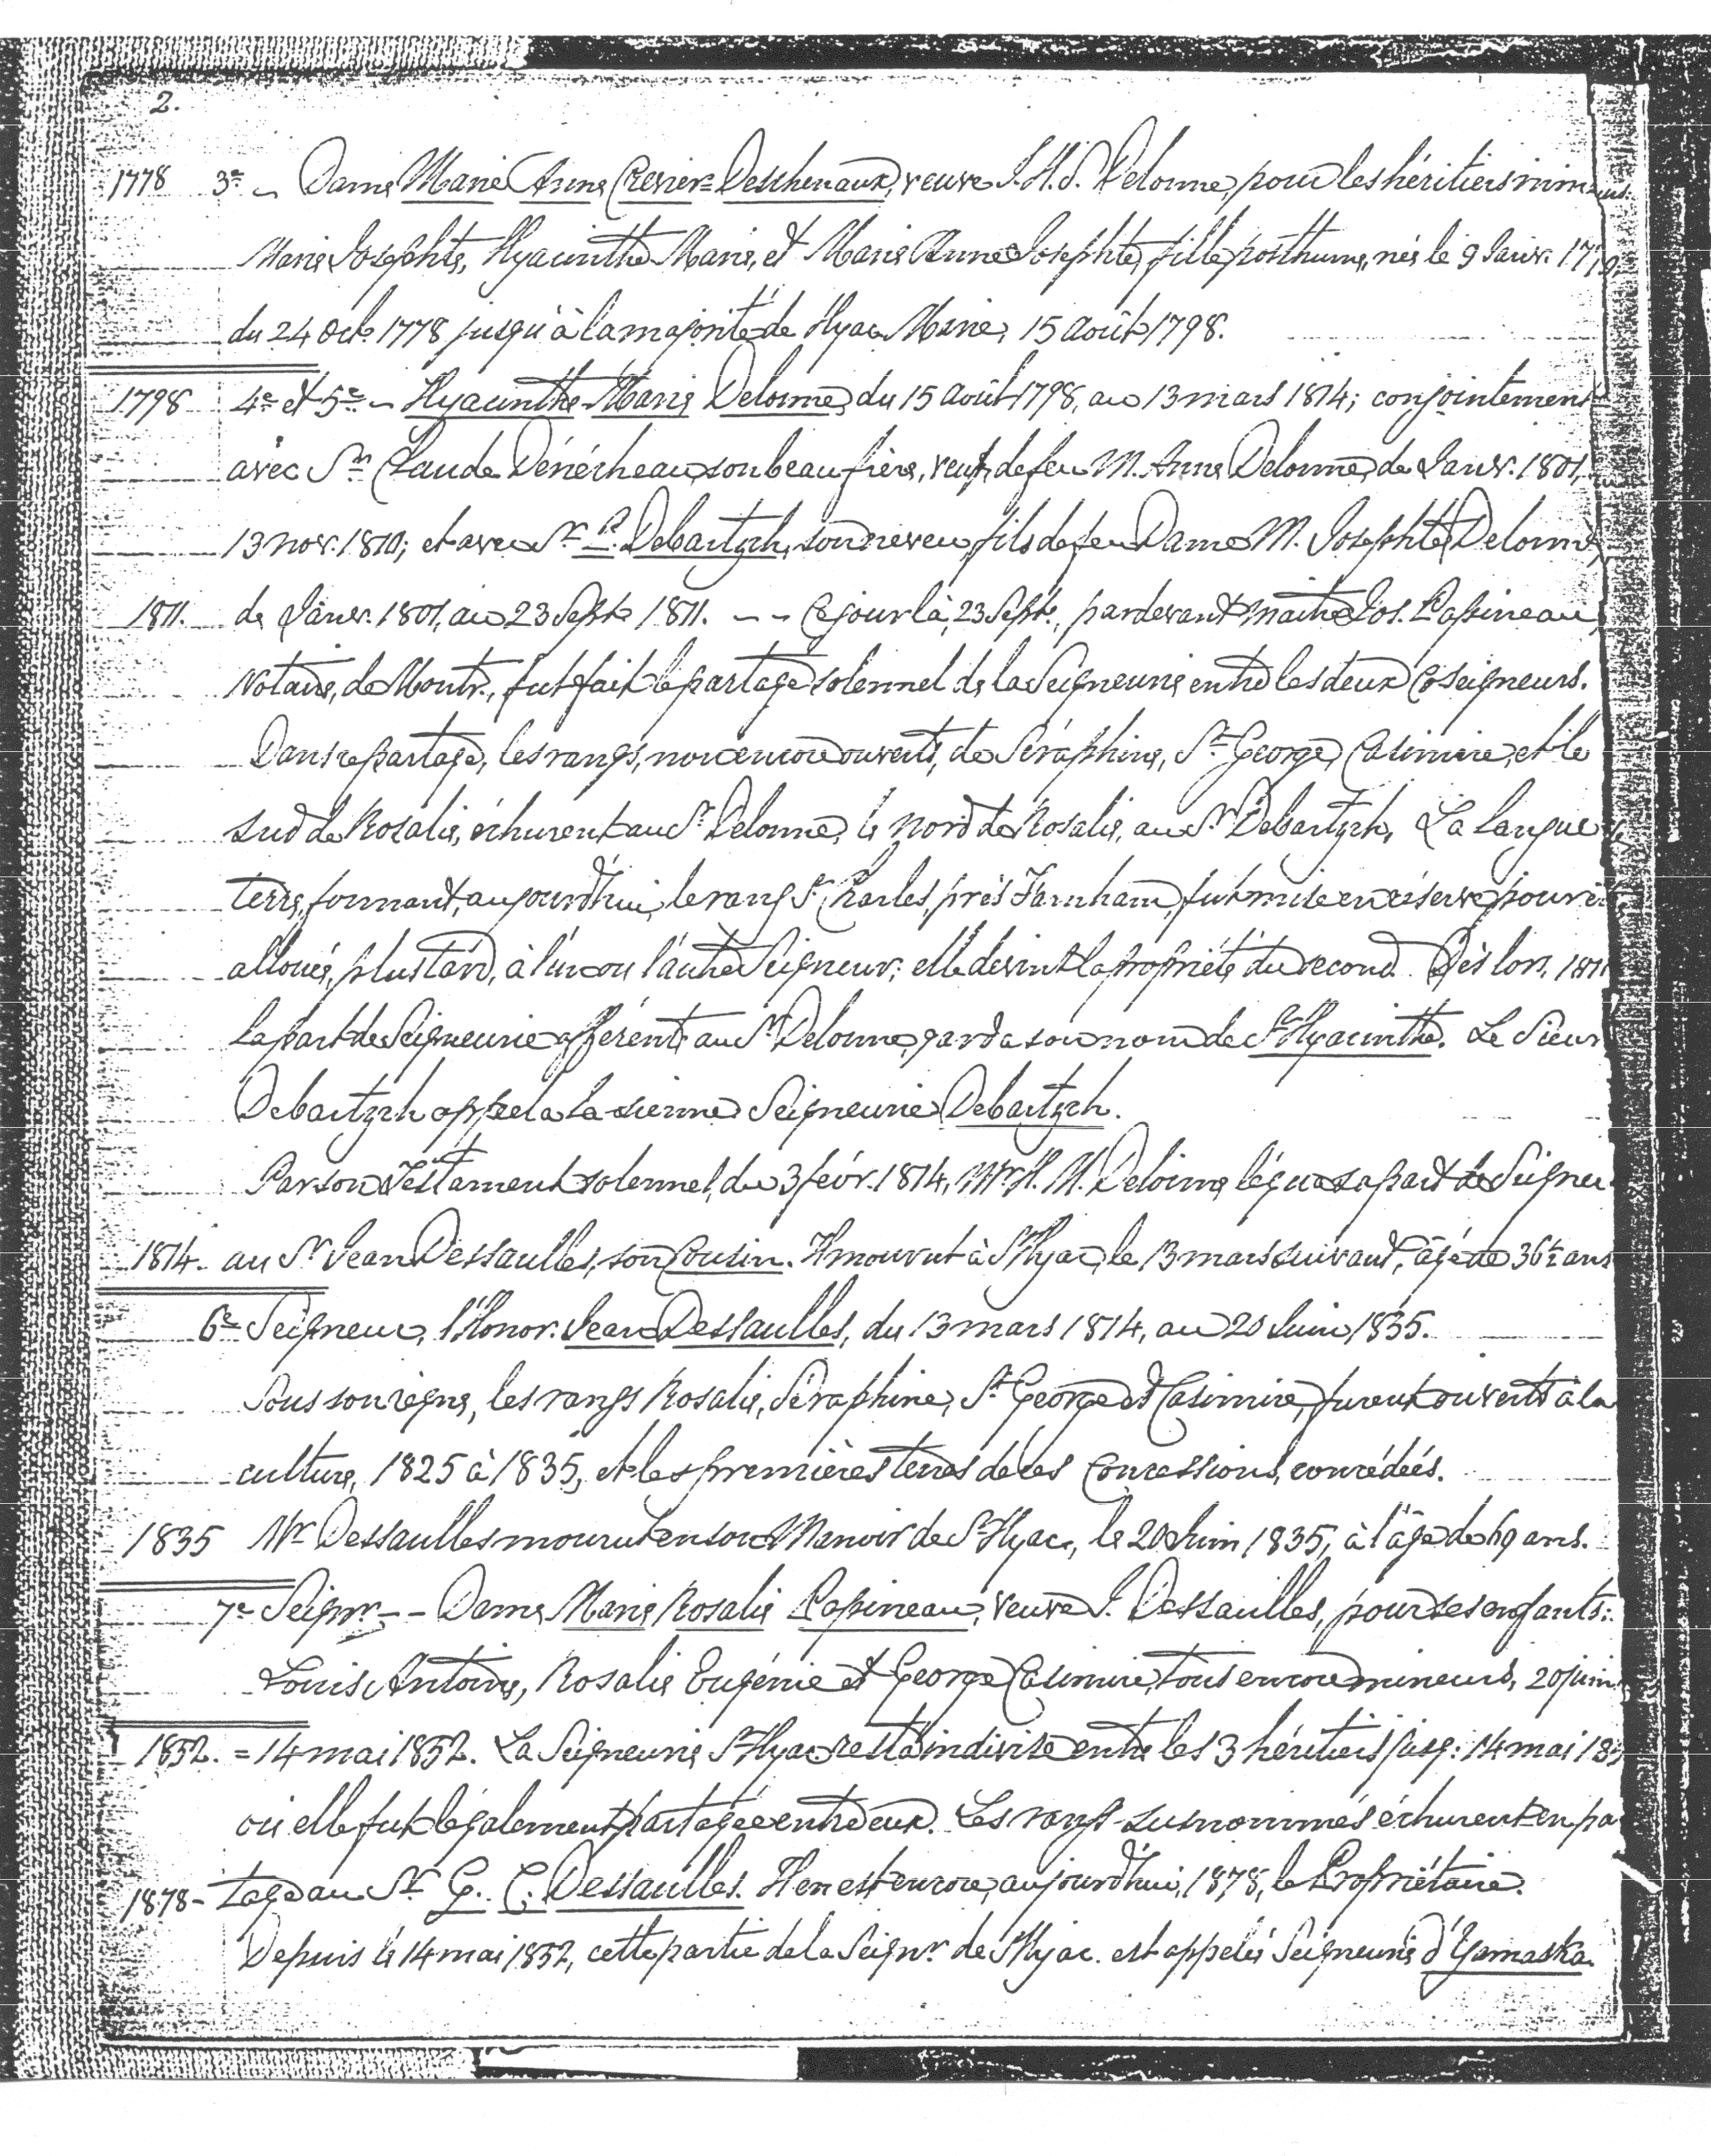 2.
1778 3e – Dame Marie Anne Crevier-Deschenaux, veuve J. H. S. Delorme, pour les héritiers mineurs
Marie Josephte, Hyacinthe Marie, et Marie Anne Josephte, fille posthume, née le 9 Janv. 1779,
du 24 Oct. 1778 jusqu'à la majorité de Hyac. Marie, 15 août 1798.
1798 4e et 5e – Hyacinthe-Marie Delorme, du 15 août 1798, au 13 mars 1814; conjointement
avec Sr Claude Dénécheau, son beau frère, veuf de feu M. Anne Delorme, de Janv. 1801,
13 nov. 1810; et avec Sr P. Debartzch, son neveu, fils de feu Dame M. Josephte Delorme,
1811. de Janv. 1801, au 23 Septe 1811. – – Ce jour là, 23 Septe, pardevant maître Jos. Papineau,
Notaire, de Montr., fut fait le partage solennel de la Seigneurie entre les deux Coseigneurs.
Dans ce partage, les rangs, non encore ouverts, de Séraphine, St George, Casimire, et le
sud de Rosalie, échurent au Sr Delorme, le nord de Rosalie, au Sr Debartzch. La langue de
terre, formant, aujourd'hui, le rang St Charles, près Farnham, fut mise en réserve pour être
allouée, plus tard, à l'un ou l'autre Seigneur; elle devint la propriété du second. Dès lors, 1811
la part de Seigneurie afférente au Sr Delorme, garda son nom de St Hyacinthe. Le Sieur
Debartzch appela la sienne Seigneurie Debartzch.
Par son Testament solennel, du 3 févr. 1814, Mr H. M. Delorme légua sa part de Seigneu.
1814. au Sr Jean Dessaulles, son Cousin. Il mourut à St Hyac, le 13 mars suivant, âgé de 36 ½ ans
6e Seigneur, l'Honor. Jean Dessaulles, du 13 mars 1814, au 20 Juin 1835.
Sous son règne, les rangs Rosalie, Séraphine, St George et Casimire, furent ouverts à la
culture, 1825 à 1835, et les premières terres de ces Concessions, concédées.
1835 Mr Dessaulles mourut en son Manoir de St Hyac., le 20 Juin 1835, à l'âge de 69 ans.
7e Seignr – – Dame Marie Rosalie Papineau, veuve J. Dessaulles, pour ses enfants:
Louis Antoine, Rosalie Eugénie et George Casimire, tous encore mineurs, 20 juin
1852. = 14 mai 1852. La Seigneurie St Hyac resta indivise entre les 3 héritiers jusq: 14 mai 185
où elle fut légalement partagée entre eux. Les rangs susnommés échurent en par
1878 – tage au Sr G. C. Dessaulles. Il en est encore, aujourd'hui, 1878, le Propriétaire.
Depuis le 14 mai 1852, cette partie de la Seignr de St Hyac. est appelée Seigneurie d'Yamaska.